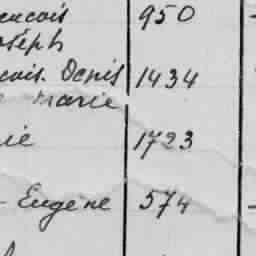 ancois 950
oseph
cois. Denis 1434
marie
rie 1723
- Eugene 574